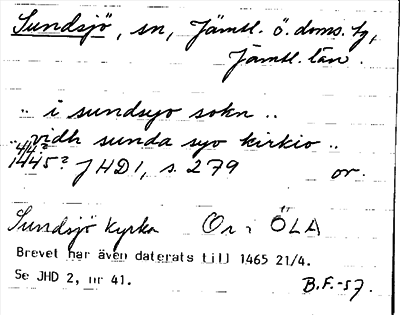 Sundsjö, sn, Jämtl. ö. doms. tg,
Jämtl. län.
.. i sundsyo sokn ..
.. vidh sunda syo kirkio ..
44?
1445? JHD1, s. 279 or.
Sundsjö kyrka Or: ÖLA
Brevet har även daterats till 1465 21/4.
Se JHD 2, nr 41. B.F.-57.